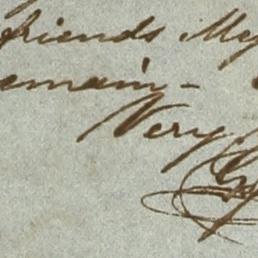 friends My
remain -
Very